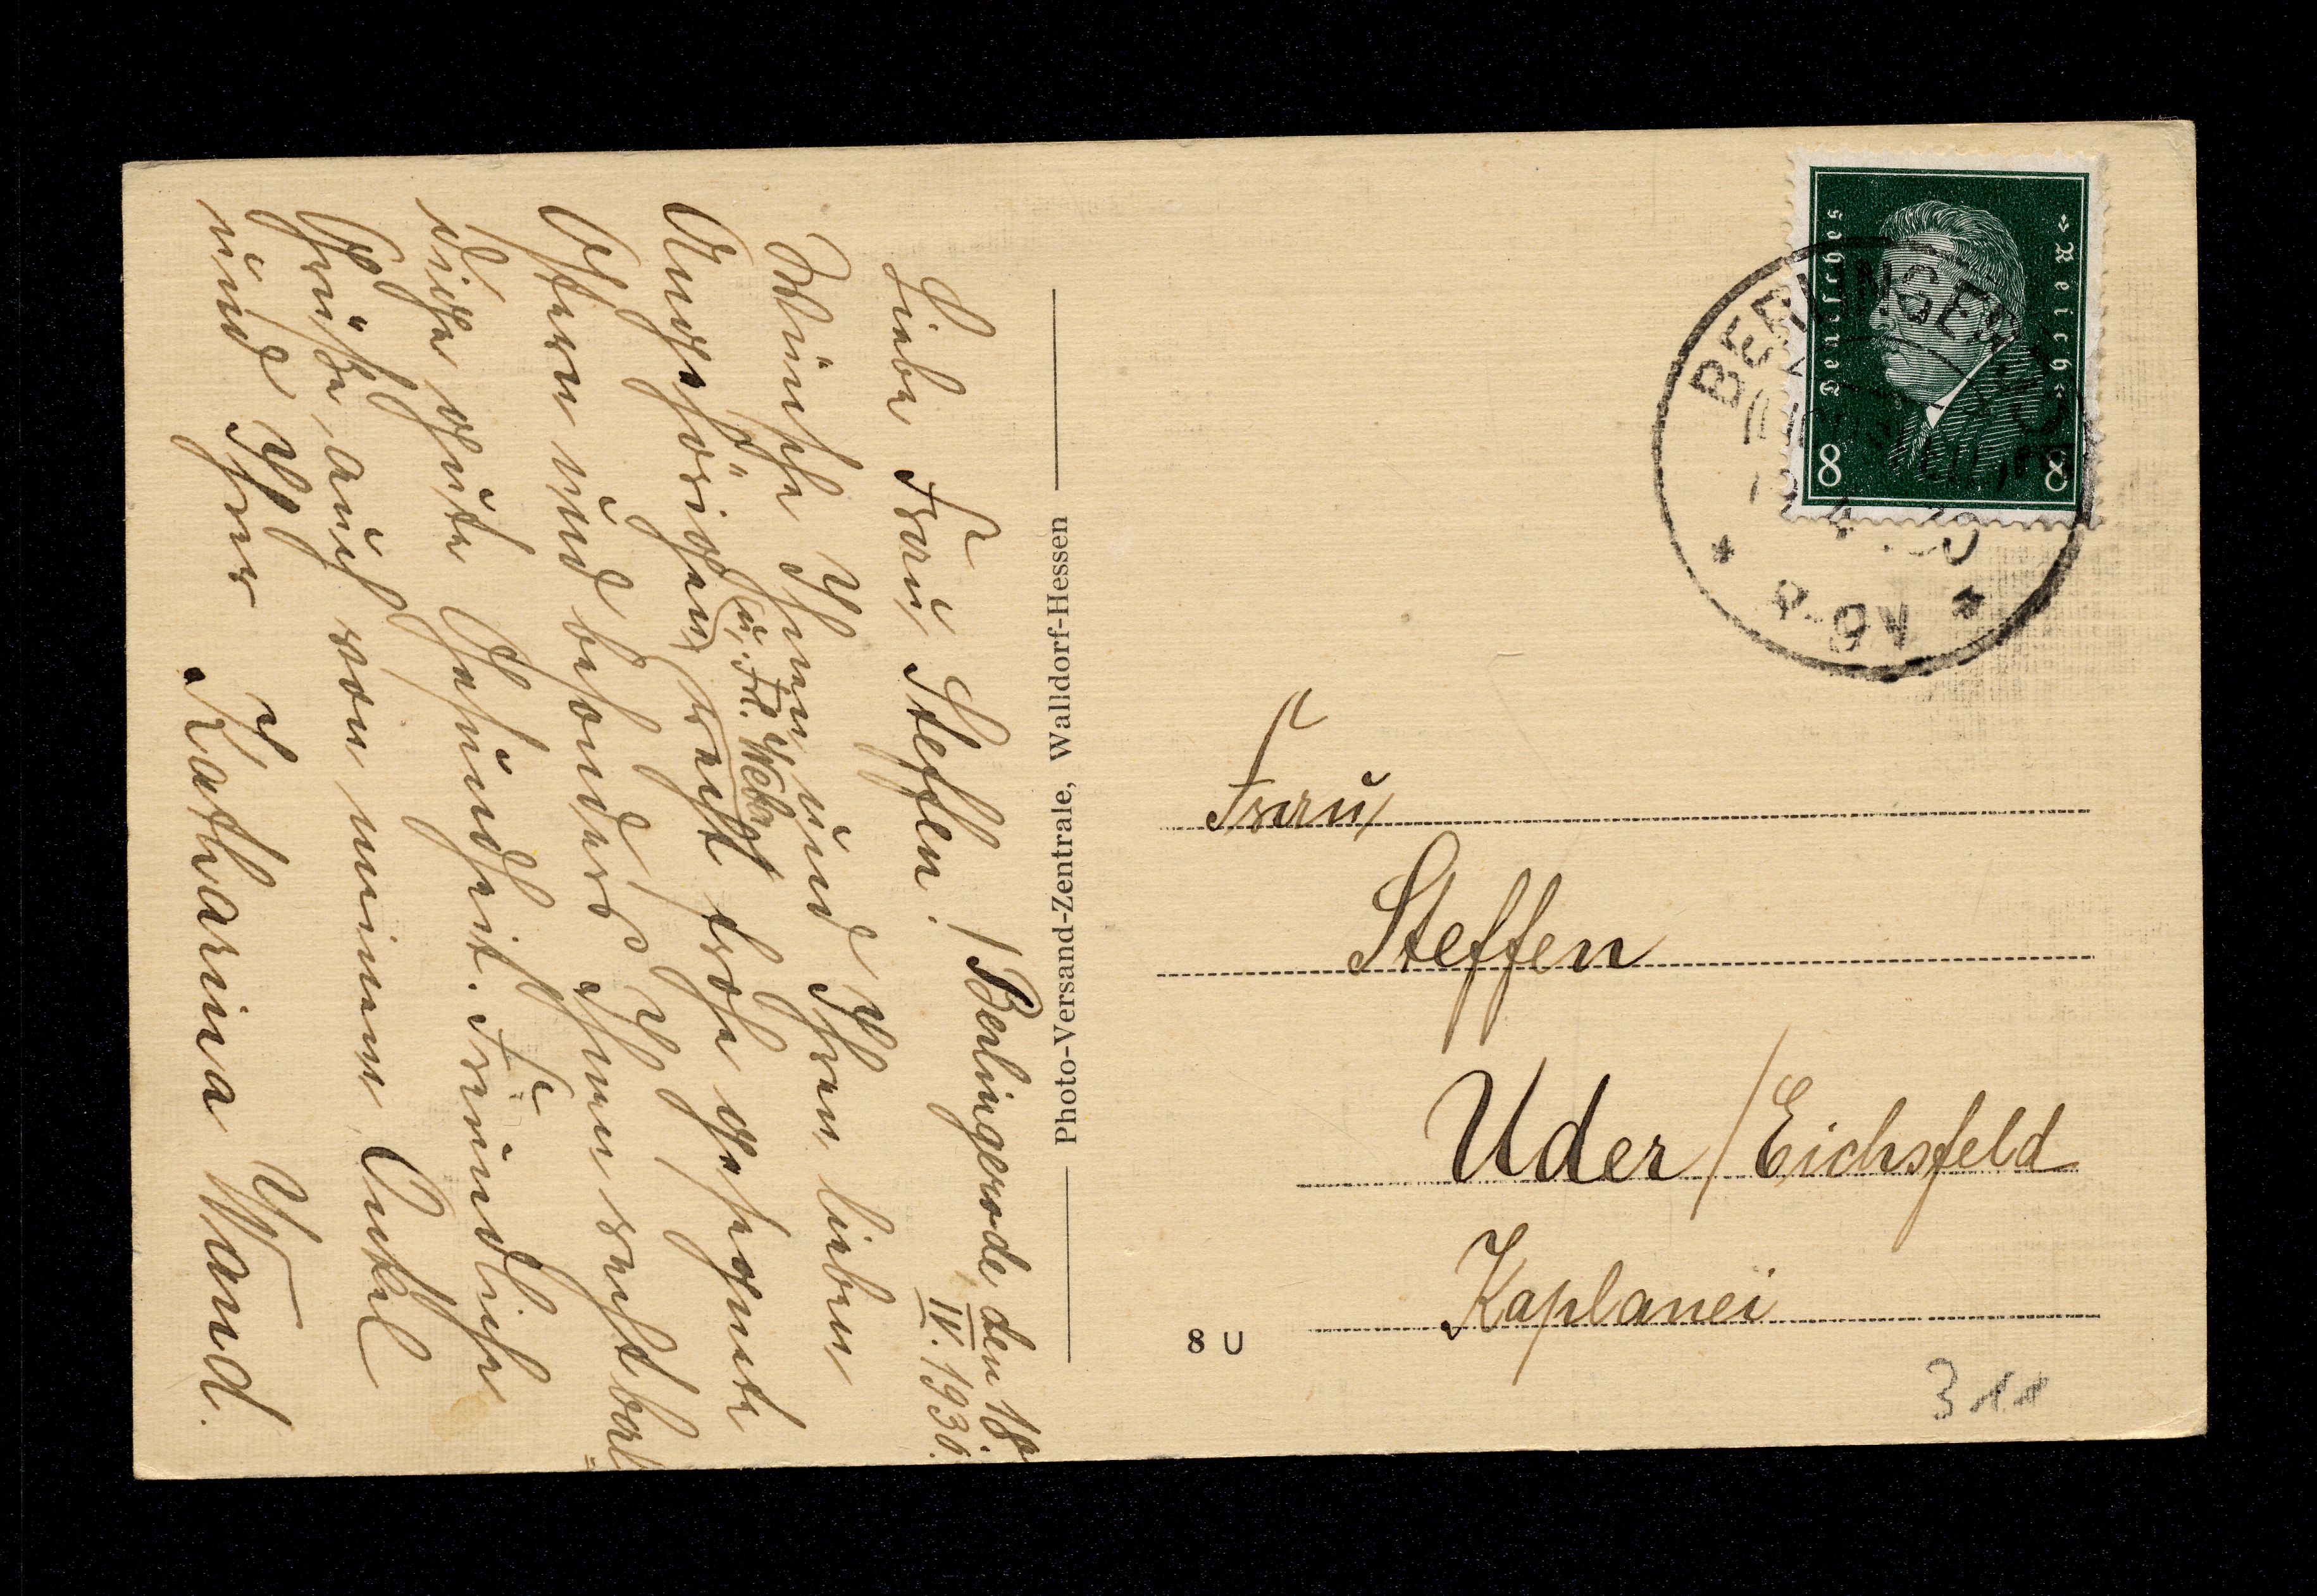 Liebe Frau Steffen! / Berlingerode den 18.
IV. 1930.
Wünsche Ihnen und Ihren lieben
Angehörigen (u. Frl. Weber) recht frohe gesegnete
Ostern und besonders Ihnen recht bal=
dige gute Gesundheit. Freundliche
Grüße, auch von meinem Onkel
und Ihrer Katharina Wand.
Photo-Versand-Zentrale, Walldorf-Hessen
Deutsches
»Reich«
8 8
BERLINGERODE
Frau
Steffen
Uder / Eichsfeld
Kaplanei
8 U
311